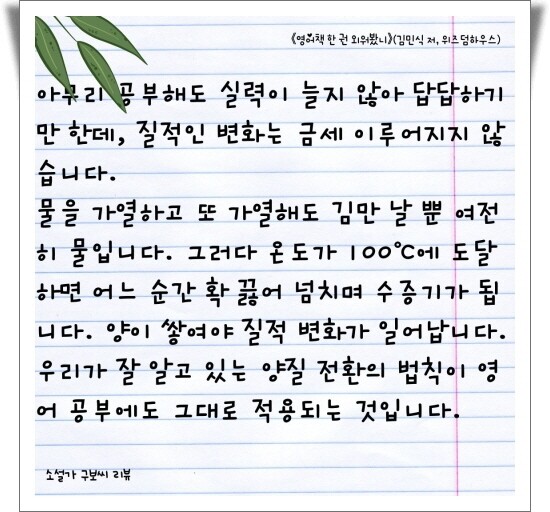 《영어책 한 권 외워봤니》(김민식 저, 위즈덤하우스)
아무리 공부해도 실력이 늘지 않아 답답하기
만 한데, 질적인 변화는 금세 이루어지지 않
습니다.
물을 가열하고 또 가열해도 김만 날 뿐 여전
히 물입니다. 그러다 온도가 100℃에 도달
하면 어느 순간 확 끓어 넘치며 수증기가 됩
니다. 양이 쌓여야 질적 변화가 일어납니다.
우리가 잘 알고 있는 양질 전환의 법칙이 영
어 공부에도 그대로 적용되는 것입니다.
소설가 구보씨 리뷰